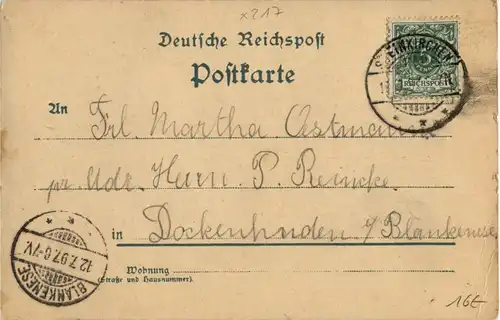 x217
Deutsche Reichspost
Postkarte
STEINKIRCHEN
5
REICHSPOST
An
Frl. Martha Ostmann
pr. Adr. Herrn P. Reincke
in Dockenhuden b/Blankenese
Wohnung
(Straße und Hausnummer).
BLANKENESE
12.7.97.6-7V.
16E